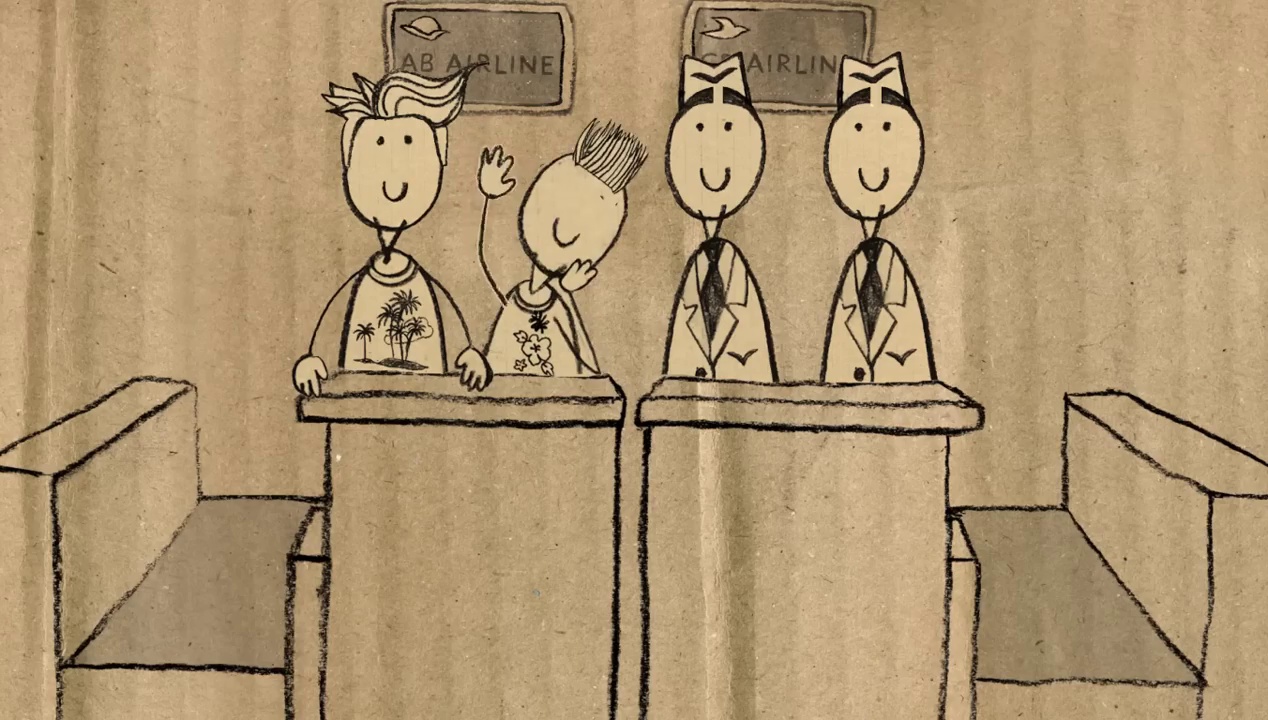 AB AIRLINE
AIRLIN